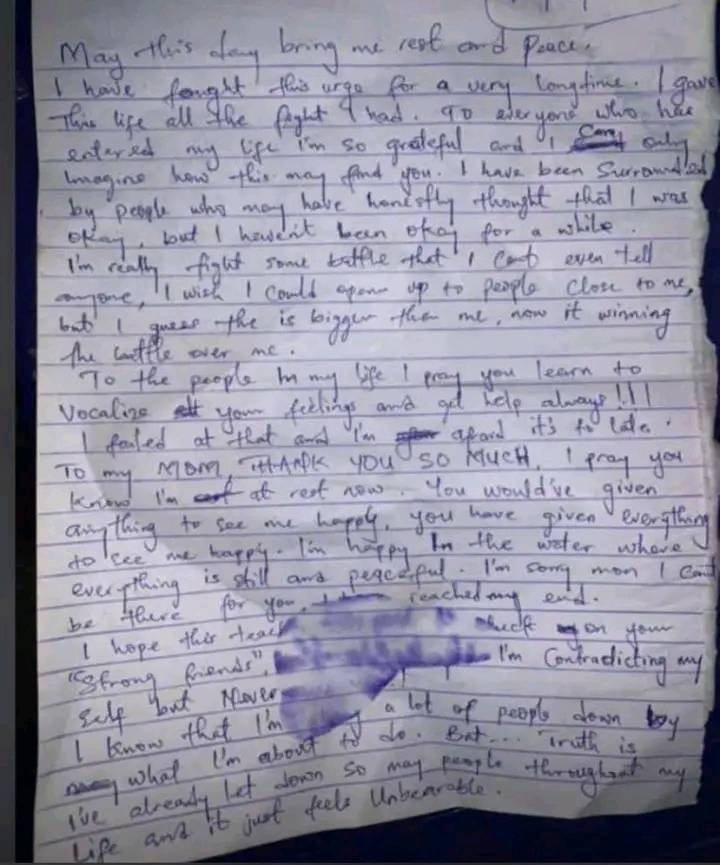 May this day bring me rest and peace.
I have fought this urge for a very longtime. I gave
This life all the fight I had. To everyone who has
entered my life I'm so grateful and I can only
Imagine how this may find you. I have been Surrounded
by people who may have honestly thought that I was
okay, but I haven't been okay for a while.
I'm really fight some battle that I cant even tell
anyone, I wish I could open up to people close to me,
but I guess the is bigger than me, now it winning
the battle over me.
To the people In my life I pray you learn to
Vocalize your feelings and get help always!!!
I failed at that and I'm afraid it's to late.
TO my MOM, THANK YOU SO MUCH, I pray you
know I'm at rest now. You would've given
anything to see me happy, you have given everything
to see me happy. I'm happy In the water where
everything is still and peaceful. I'm sorry mom I cant
be there for you, reached my end.
I hope this teach check on your
"Strong friends", I'm Contradicting my
Self but Never
I know that I'm a lot of people down by
what I'm about to do. But.... Truth is
I've already let down so may people throughout my
Life and it just feels Unbearable.